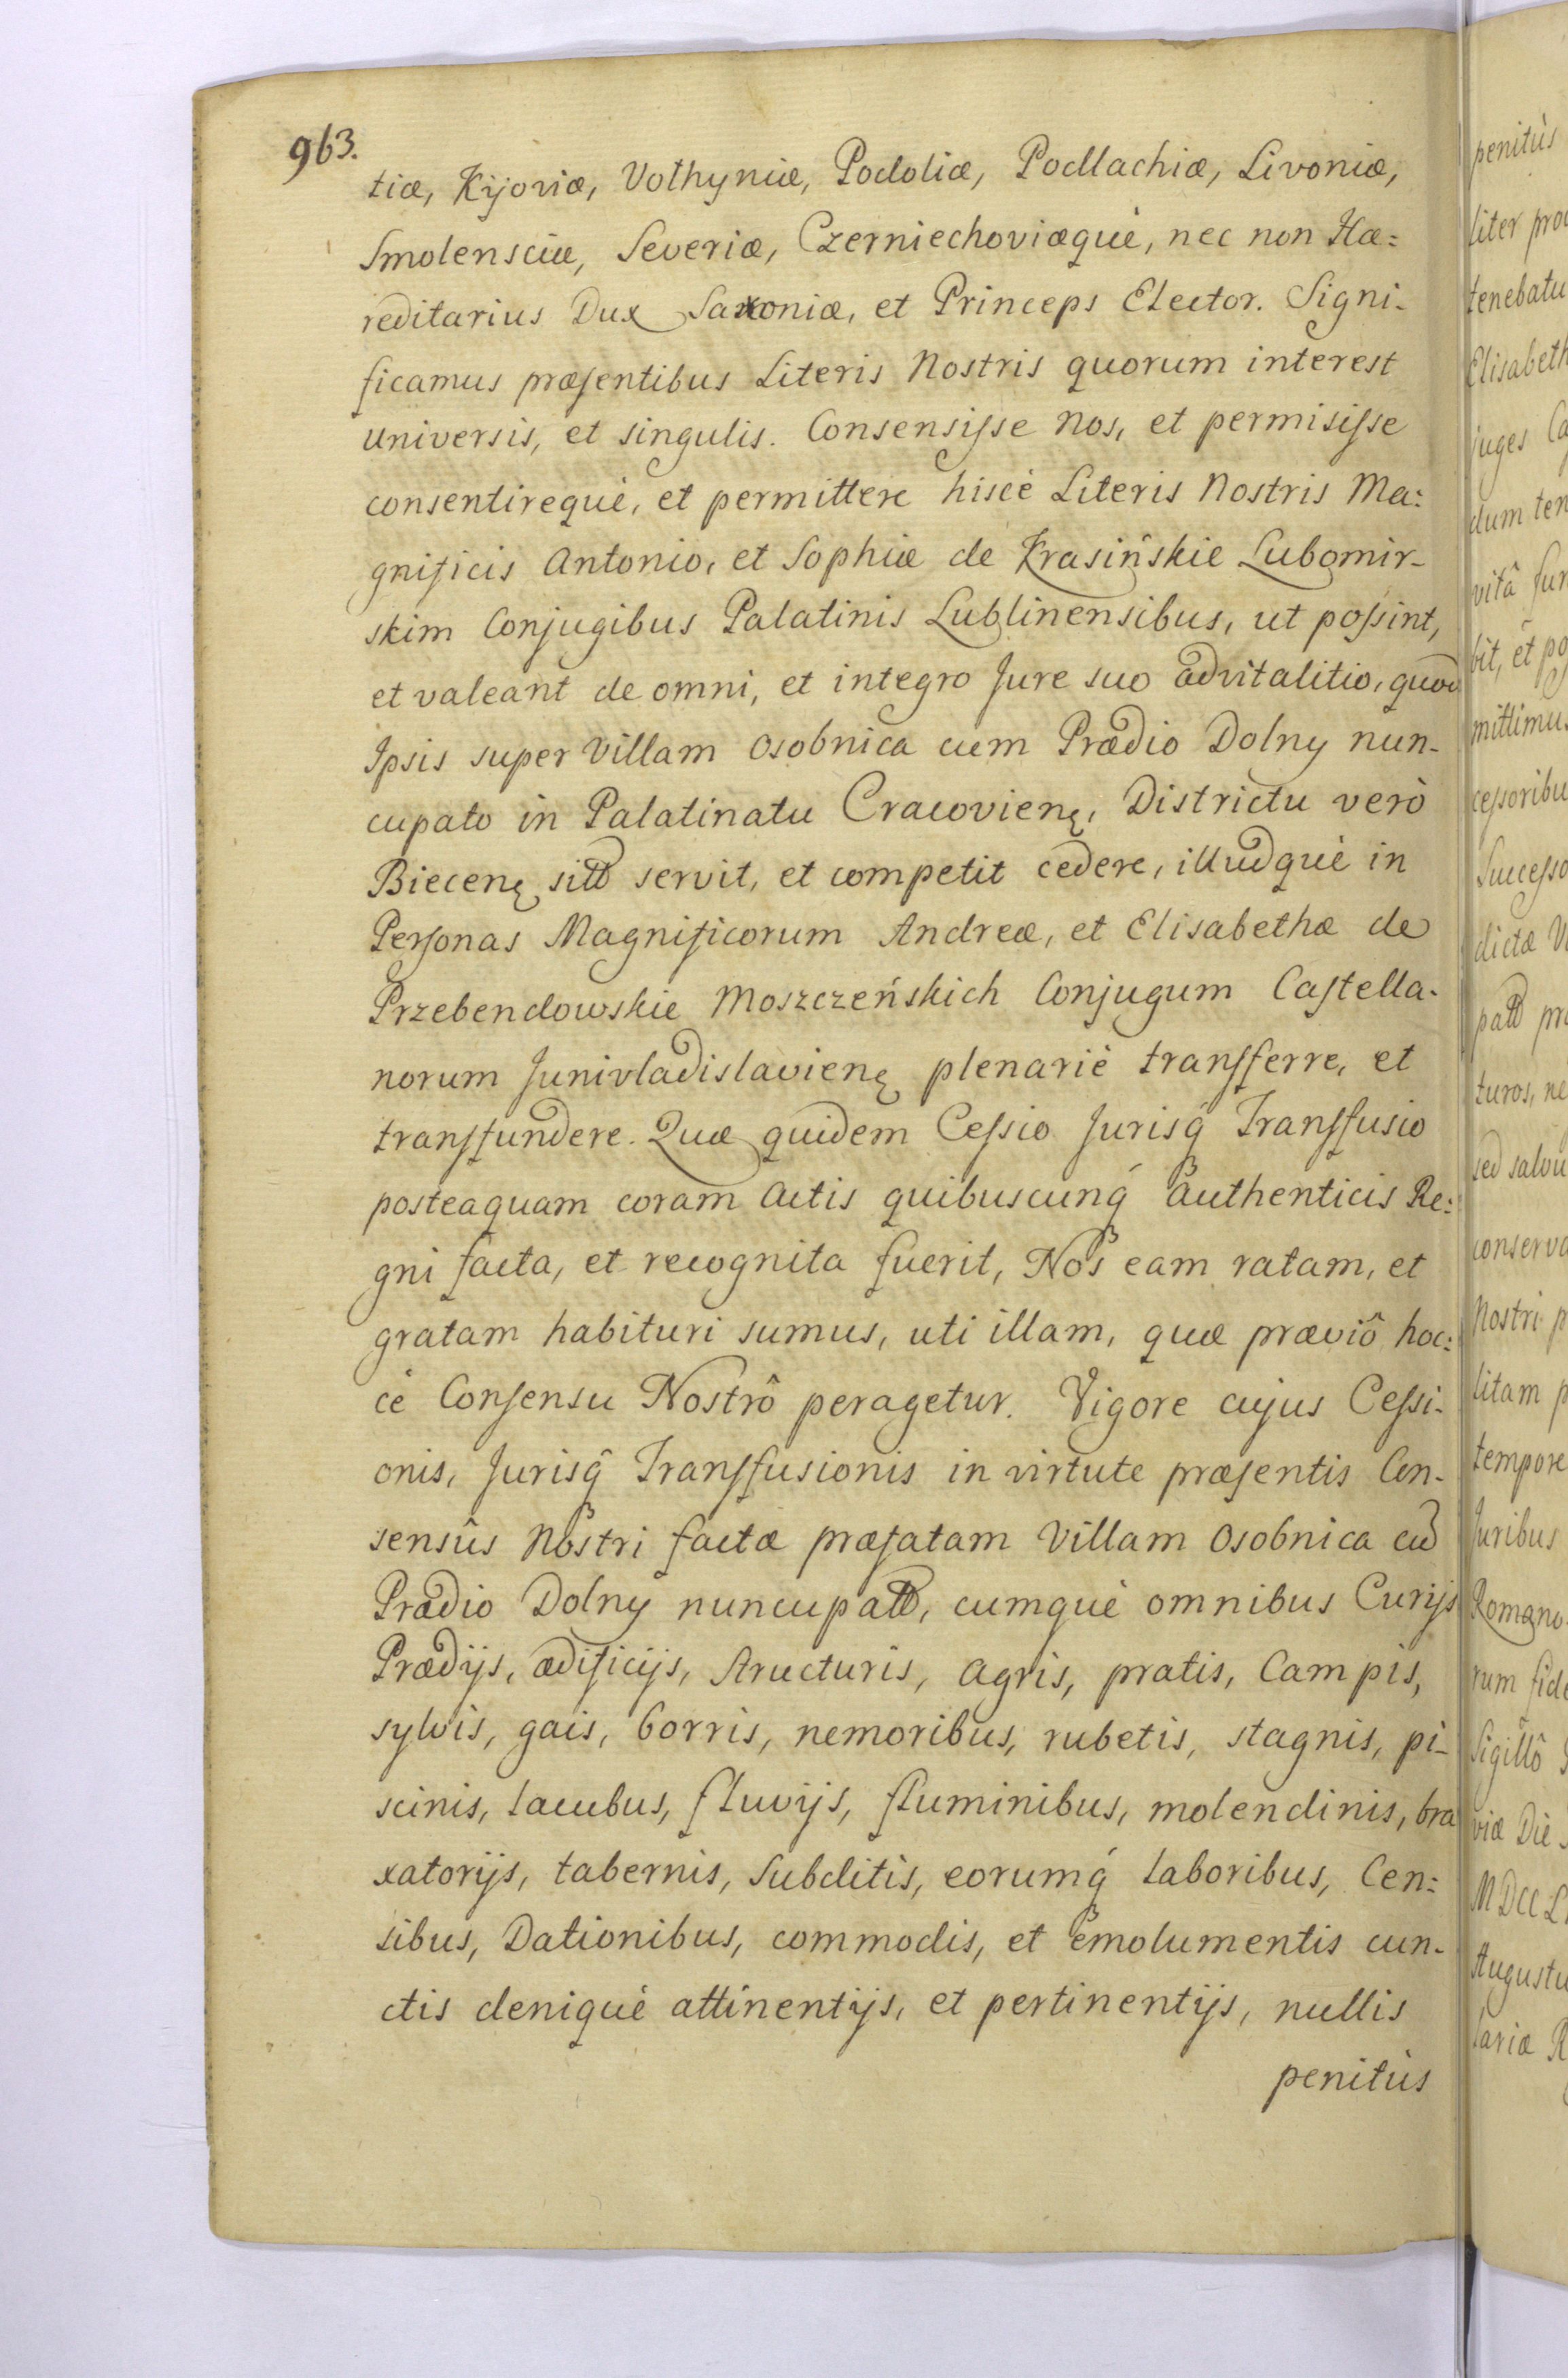 963.
tiæ, Kijoviæ, Volhyniæ, Podoliæ, Podlachiæ, Livoniæ,
Smolensciæ, Severiæ, Czerniechoviæquè, nec non Hæ:
reditarius Dux Saxoniæ, et Princeps Elector. Signi-
ficamus præsentibus Literis Nostris quorum interest
universis, et singulis. Consensisse Nos, et permisisse
consentirequè, et permittere hiscè Literis Nostris Ma:
gnificis Antonio, et Sophiæ de Krasińskie Lubomir-
skim Conjugibus Palatinis Lublinensibus, ut possint,
et valeant de omni, et integro Jure suo advitalitio, quod
Ipsis super Villam Osobnica cum Prædio Dolny nun-
cupato in Palatinatu Cracovienę, Districtu verò
Biecenę sito servit, et competit cedere, illudquè in
Personas Magnificorum Andreæ, et Elisabethæ de
Przebendowskie Moszczeńskich Conjugum Castella-
norum Junivladislavienę plenariè transferre, et
transfundere. Quæ quidem Cessio Jurisq́ Transfusio
posteaquam coram Actis quibuscunq́ Authenticis Re:
gni facta, et recognita fuerit, Nos eam ratam, et
gratam habituri sumus, uti illam, quæ præviô hoc:
cè Consensu Nostrô peragetur. Vigore cujus Cessi-
onis, Jurisq̂ Transfusionis in virtute præsentis Con-
sensûs Nostri factæ præfatam Villam Osobnica cū
Prædio Dolny nuncupato, cumquè omnibus Curijs
Prædijs, ædificijs, structuris, agris, pratis, Campis,
sylvis, gais, borris, nemoribus, rubetis, stagnis, pi-
scinis, lacubus, fluvijs, fluminibus, molendinis, bra
xatorijs, tabernis, Subditis, eorumq́ laboribus, Cen:
sibus, Dationibus, commodis, et emolumentis cun-
ctis deniquè attinentijs, et pertinentijs, nullis
penitùs
penitùs
liter
tenebatu
Elisabeth
juges
dum
vitâ
bit, et
mittimus
cessoribu
Successo
dictæ
pato
turos,
sed
conserva
Nostri
litam
tempore
Juribus
Romano
rum
Sigillô
viæ Die
MDCCL
Augustu
lariæ